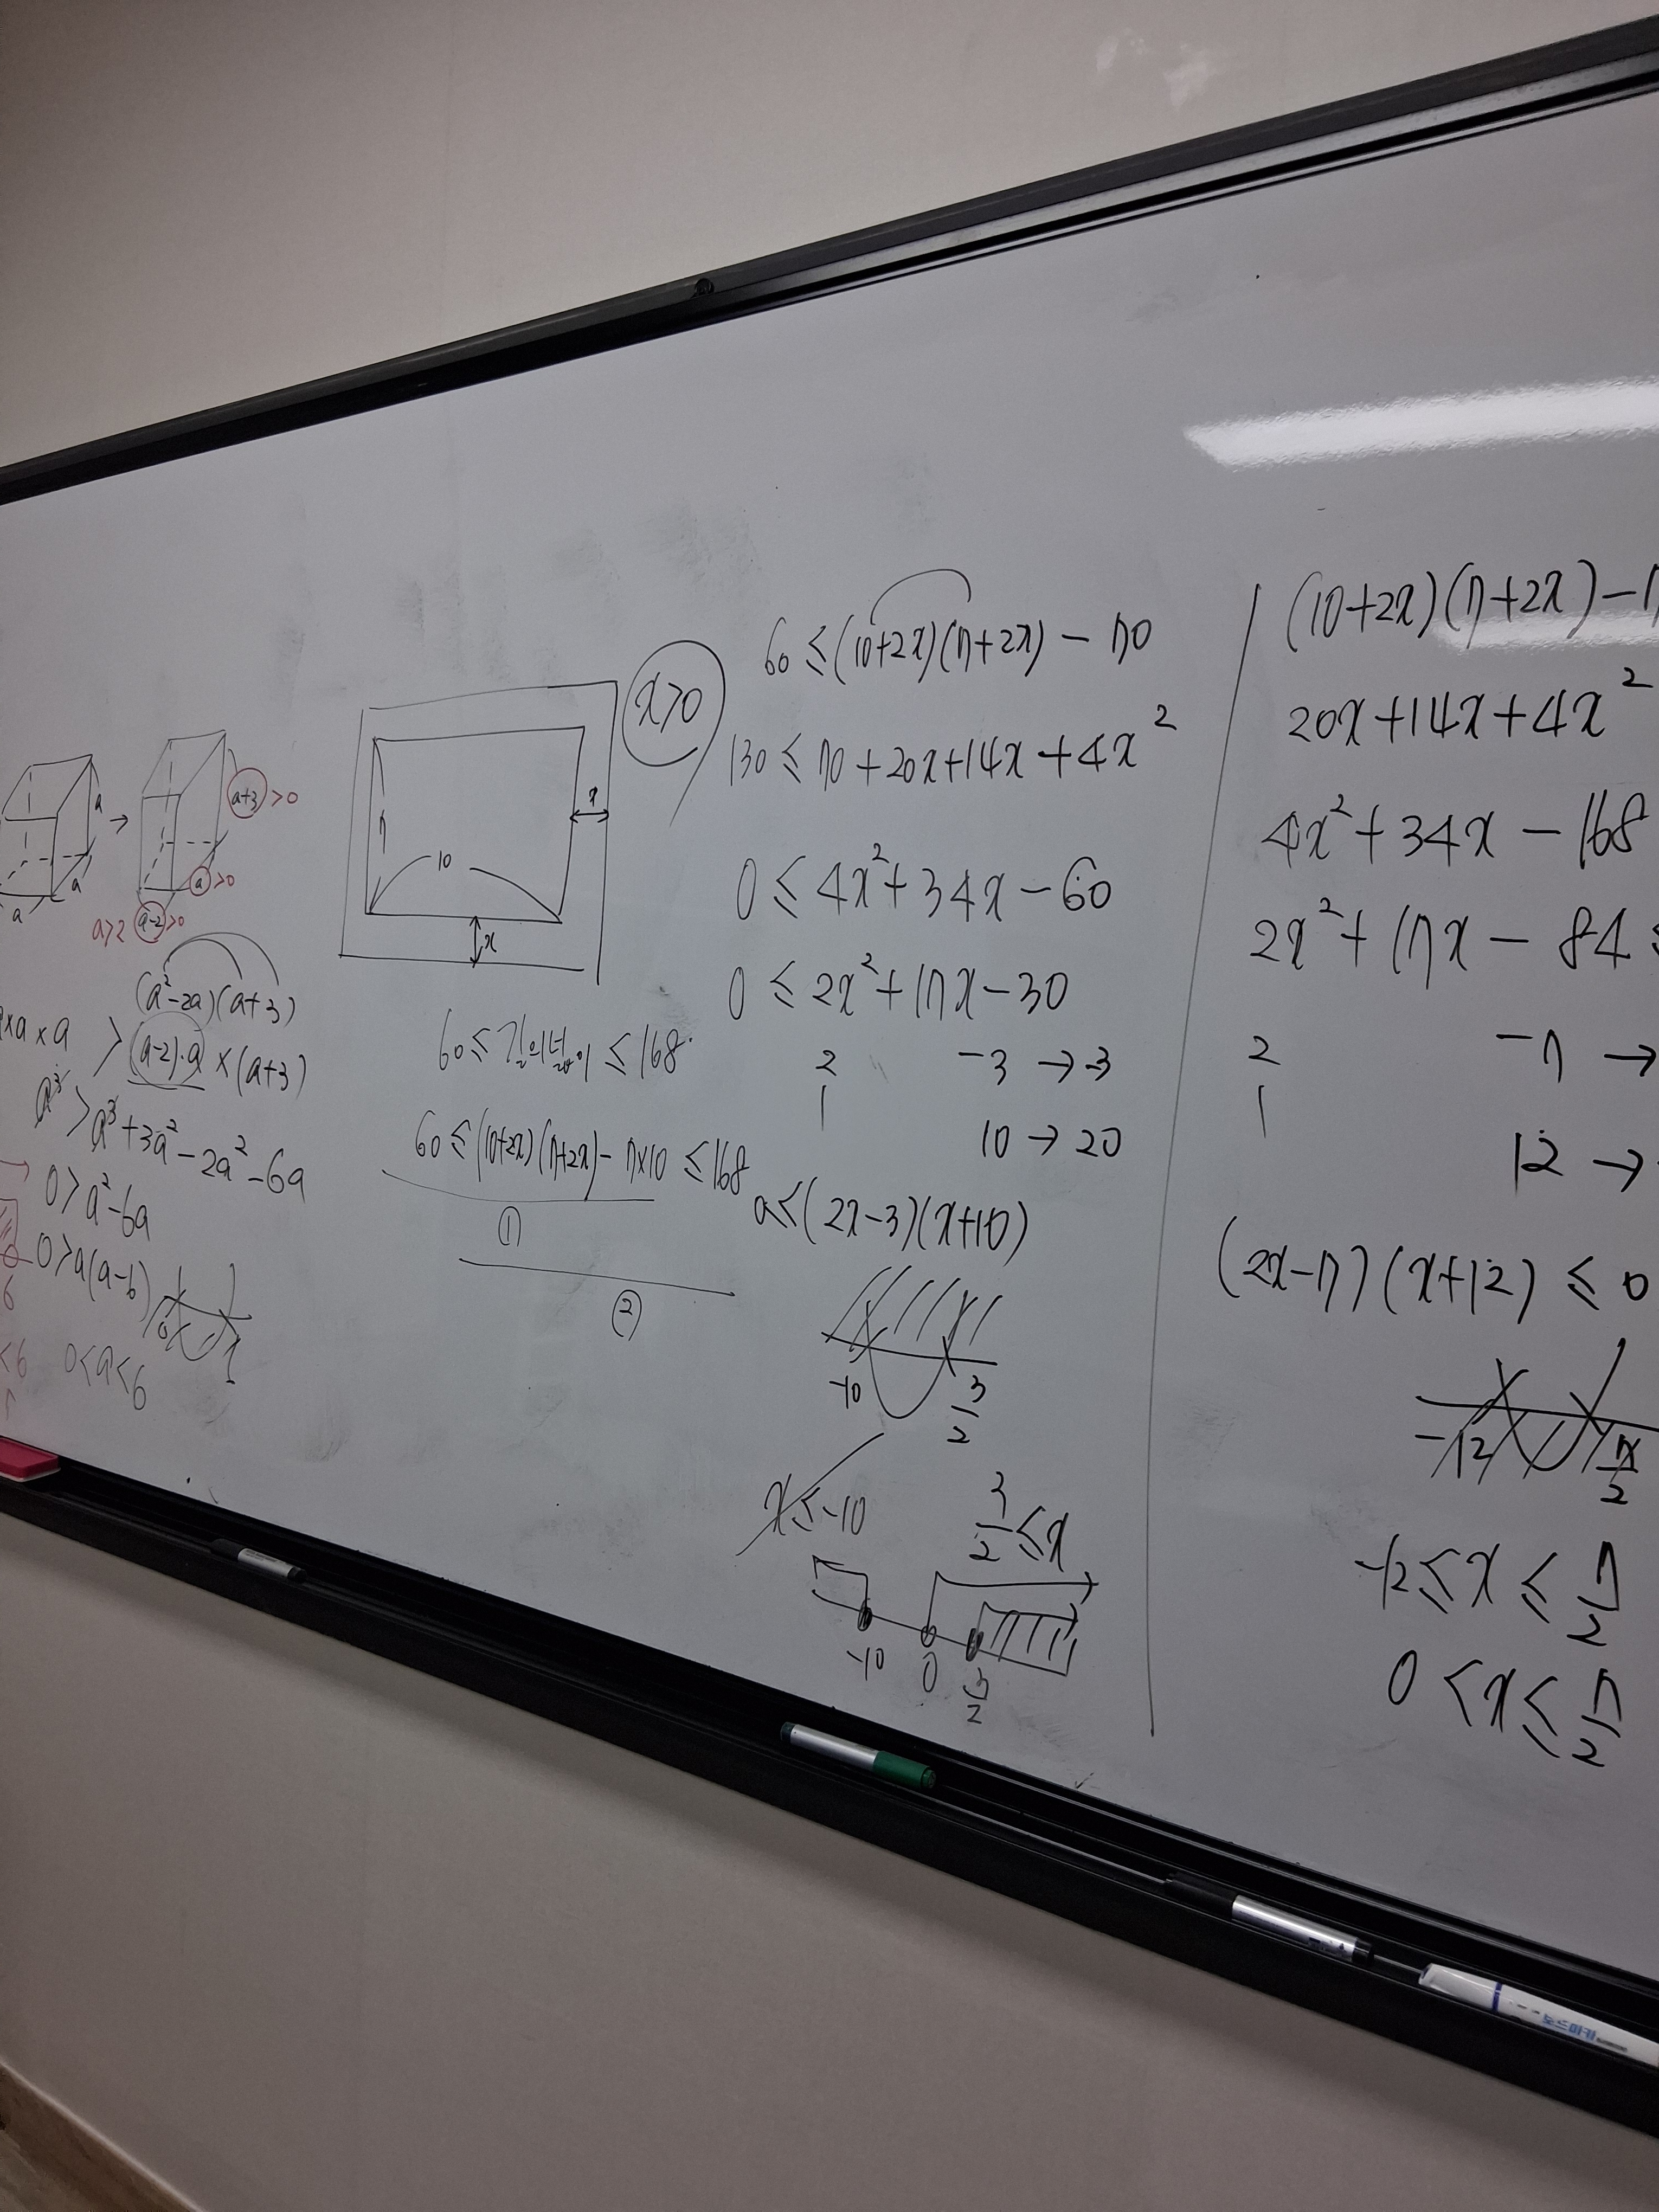 a
a
a
→
a+3 >0
a >0
a-2 >0
a>2
(a²-2a)(a+3)
×a×a > (a-2)·a×(a+3)
a³ > a³+3a²-2a²-6a
0>a²-6a
0>a(a-6)
6
<6
0<a<6
x>0
7
10
x
x
60≤길의넓이≤168
60≤(10+2x)(7+2x)-7×10≤168
①
②
60≤(10+2x)(7+2x)-70
130≤70+20x+14x+4x²
0≤4x²+34x-60
0≤2x²+17x-30
2 -3 →-3
1 10→20
0≤(2x-3)(x+10)
-10 3/2
x≤-10 3/2≤x
-10 0 3/2
(10+2x)(7+2x)-7
20x+14x+4x²
4x²+34x-168
2x²+17x-84≤
2 -7 →
1 12 →
(2x-7)(x+12)≤0
-12 7/2
-12≤x≤7/2
0<x≤7/2
보드마카